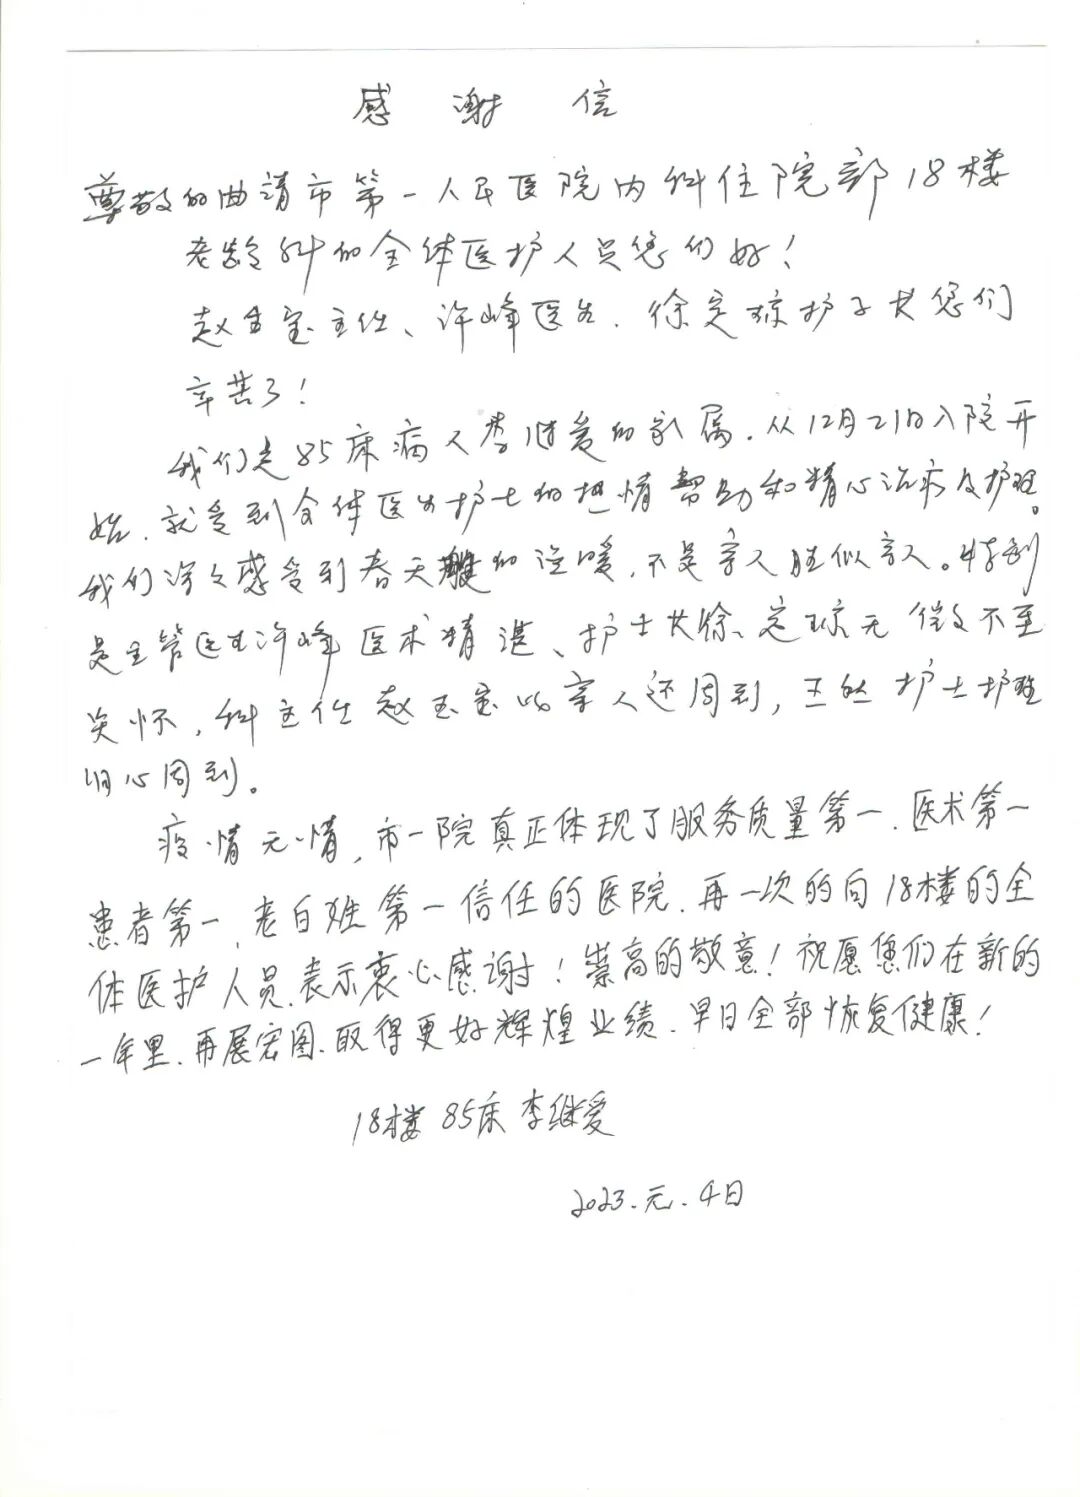 感谢信
尊敬的曲靖市第一人民医院内科住院部18楼
老龄科的全体医护人员您们好!
赵玉宝主任、许峰医生、徐定琼护士长您们
辛苦了!
我们是85床病人李继爱的家属.从12月21日入院开
始.就受到全体医生护士的热情帮助和精心治疗及护理。
我们深深感受到春天般的温暖,不是亲人胜似亲人。特别
是主管医生许峰医术精湛、护士长徐定琼无微不至
关怀,科主任赵玉宝比亲人还周到,王丛护士护理
细心周到。
疫情无情,市一院真正体现了服务质量第一.医术第一
患者第一,老百姓第一信任的医院.再一次的向18楼的全
体医护人员.表示衷心感谢!崇高的敬意!祝愿您们在新的
一年里.再展宏图.取得更好辉煌业绩.早日全部恢复健康!
18楼85床李继爱
2023.元.4日